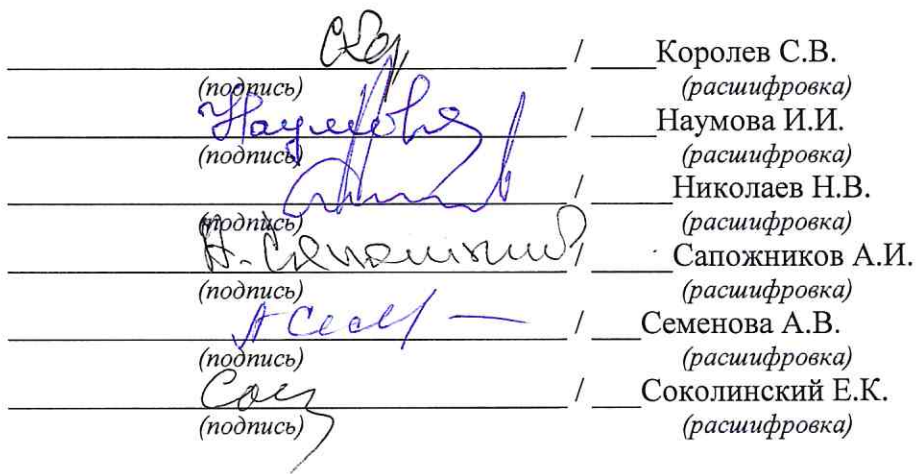 / ___Королев С.В.
(подпись) (расшифровка)
Наумова / ___Наумова И.И.
(подпись) (расшифровка)
/ ___Николаев Н.В.
(подпись) (расшифровка)
/ ___Сапожников А.И.
(подпись) (расшифровка)
/ ___Семенова А.В.
(подпись) (расшифровка)
/ ___Соколинский Е.К.
(подпись) (расшифровка)